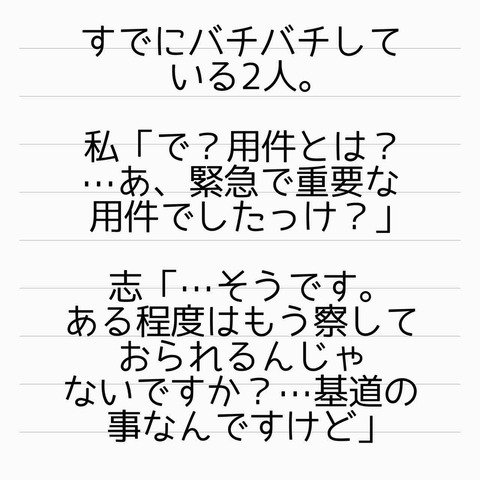 すでにバチバチして
いる2人。
私「で？用件とは？
…あ、緊急で重要な
用件でしたっけ？」
志「…そうです。
ある程度はもう察して
おられるんじゃ
ないですか？…基道の
事なんですけど」